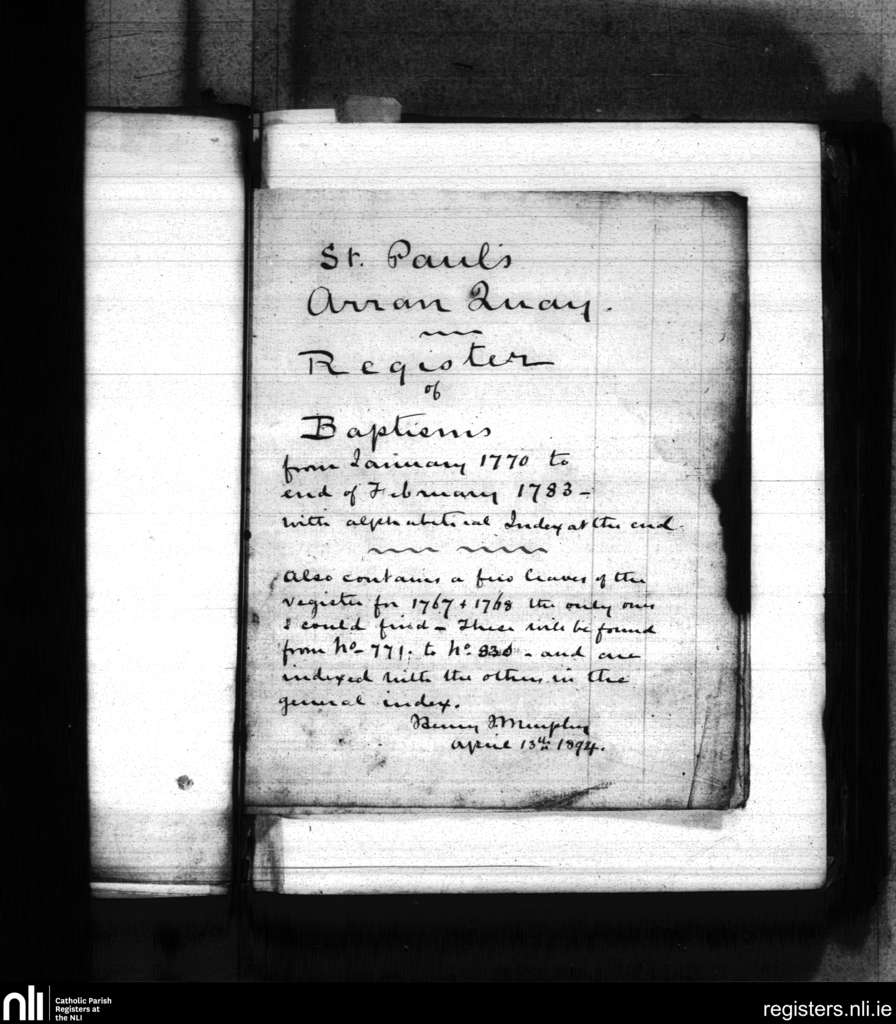 St. Paul's
Arran Quay.
Register
of
Baptisms
from January 1770 to
end of February 1783 -
with alphabetical Index at the end.
Also contains a few leaves of the
register for 1767 & 1768 the only ones
I could find - These will be found
from No. 771. to No. 830 - and are
indexed with the others in the
general index.
Henry J Murphy
April 13th 1894.
nli
Catholic Parish
Registers at
the NLI
registers.nli.ie